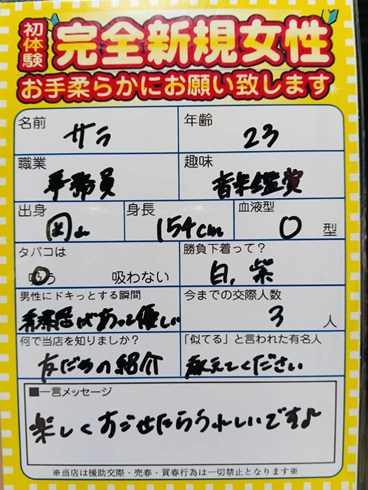 初体験
完全新規女性
お手柔らかにお願い致します
名前 サラ 年齢 23
職業 事務員 趣味 音楽鑑賞
出身 岡山 身長 154cm 血液型 O 型
タバコは 勝負下着って?
吸う 吸わない 白、紫
男性にドキっとする瞬間 今までの交際人数
余裕があって優しい 3 人
何で当店を知りましたか? 「似てる」と言われた有名人
友だちの紹介 教えてください
■一言メッセージ
楽しくすごせたらうれしいです♪
※当店は援助交際・売春・買春行為は一切禁止となります※